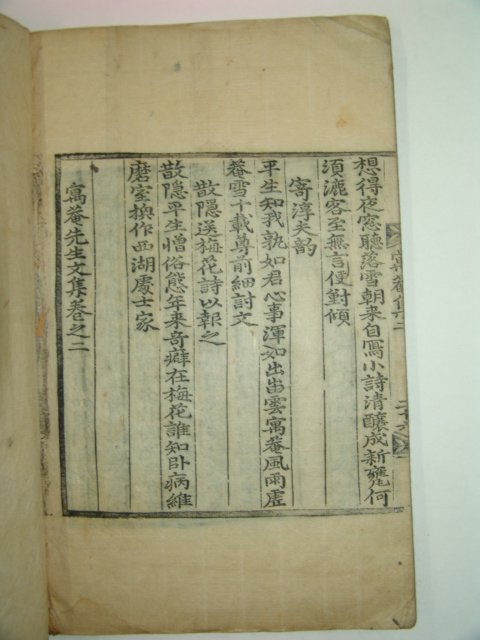 想得夜窓聽落雪朝来自寫小詩清釀成新甕何
須漉客至無言便對傾
寄淳夫韵
平生知我孰如君心事渾如出岀雲寓菴風雨虛
菴雪千載尊前細討文
散隠送梅花詩以報之
散隠平生憎俗態年来奇癖在梅花誰知卧病維
磨室換作西湖處士家
寓菴先生文集卷之二